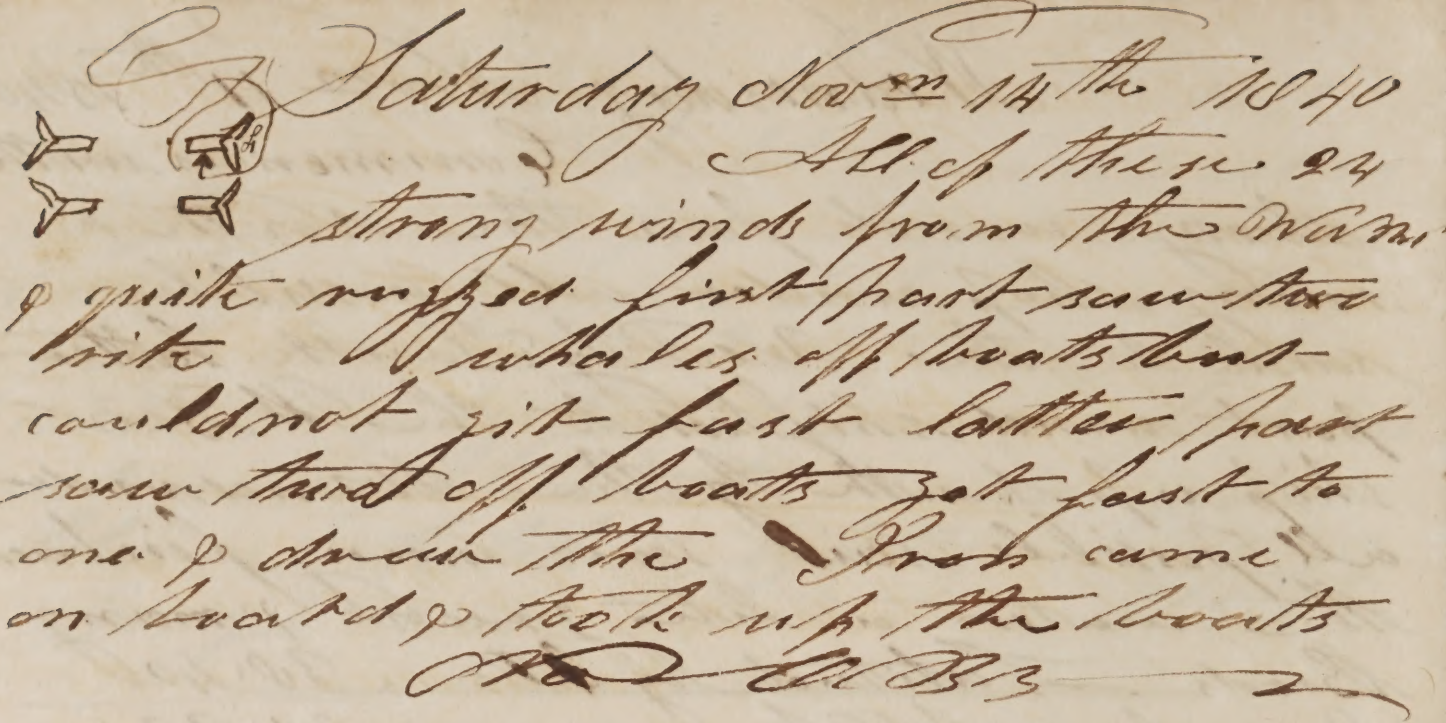 Saturday Novm 14th 1840
All of these 24
strong winds from the
& quite rugged first part saw two
rite whales off boats but
couldnot git fast latter part
saw two off boats got fast to
one & drew the Iron came
on board & took up the boats